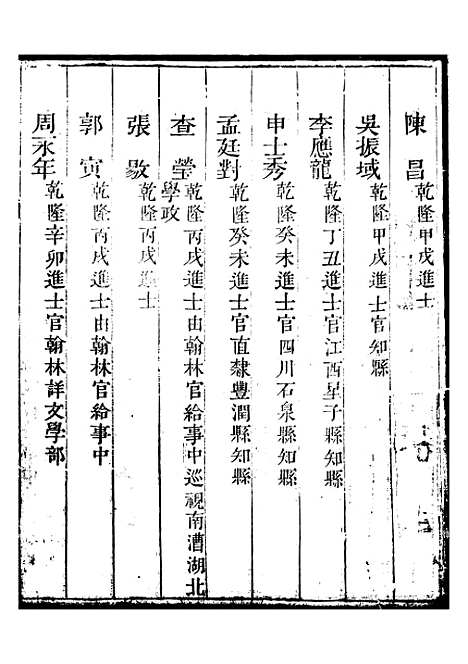 陳昌乾隆甲戌進士
吳振域乾隆甲戌進士官知縣
李應龍乾隆丁丑進士官江西星子縣知縣
申士秀乾隆癸未進士官四川石泉縣知縣
孟廷對乾隆癸未進士官直隸豐潤縣知縣
查瑩乾隆丙戌進士由翰林官給事中巡視南漕湖北
學政
張敭乾隆丙戌進士
郭寅乾隆丙戌進士由翰林官給事中
周永年乾隆辛卯進士官翰林詳文學部